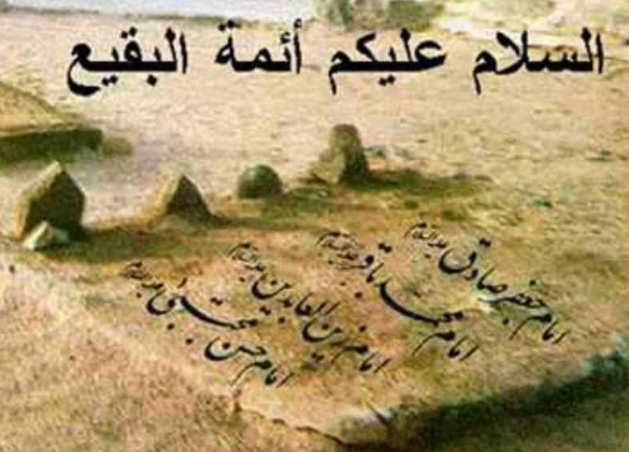 السلام عليكم أئمة البقيع
امام جعفر صادق علیه السلام
امام محمد باقر علیه السلام
امام زین العابدین علیه السلام
امام حسن مجتبی علیه السلام